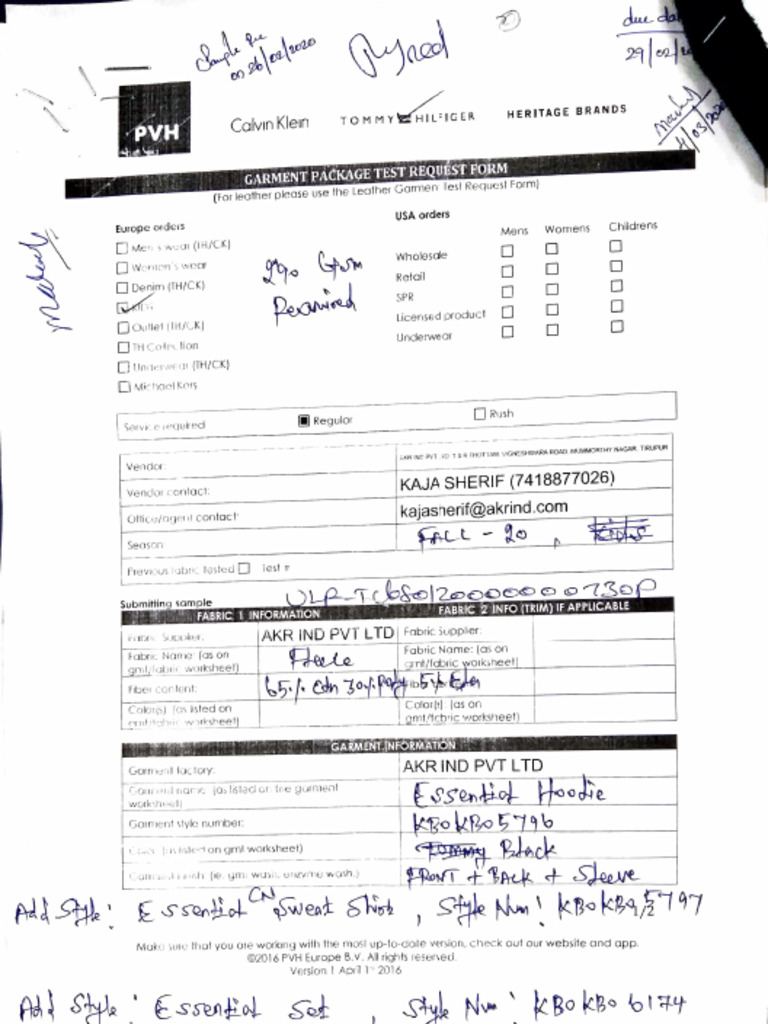 Sample Due
on 26/02/2020
due da
29/02/
PVH
Calvin Klein
TOMMY HILFIGER
HERITAGE BRANDS
GARMENT PACKAGE TEST REQUEST FORM
(For leather please use the Leather Garmen Test Request Form)
Europe orders
Men's wear (TH/CK)
Women's wear
Denim (TH/CK)
Kids
Outlet (TH/CK)
TH Collection
Underwear (TH/CK)
Michael Kors
290 Gsm
Required
USA orders
Mens Womens Childrens
Wholesale
Retail
SPR
Licensed product
Underwear
Service required Regular Rush
Vendor:
Vendor contact: KAJA SHERIF (7418877026)
Office/agent contact: kajasherif@akrind.com
Season FALL - 20
Previous fabric tested Test #
Submitting sample
FABRIC 1 INFORMATION FABRIC 2 INFO (TRIM) IF APPLICABLE
Fabric Supplier: AKR IND PVT LTD Fabric Supplier:
Fabric Name: (as on gmt/fabric worksheet) Fabric Name: (as on gmt/fabric worksheet)
Fiber content: 65% 30% 5%
Color(s): (as listed on gmt/fabric worksheet) Color(s): (as on gmt/fabric worksheet)
GARMENT INFORMATION
Garment factory: AKR IND PVT LTD
Garment name: (as listed on the garment worksheet) Essential Hoodie
Garment style number: KB0KB05796
Color: (as listed on gmt worksheet) Black
Garment wash: (ie. gmt wash, enzyme wash.) FRONT + BACK + Sleeve
Add Style: Essential CN Sweat Shirt, Style Num: 5797
Make sure that you are working with the most up-to-date version, check out our website and app.
©2016 PVH Europe B.V. All rights reserved.
Version 1 April 1st 2016
Add Style: Essential Set, Style Num: KB0KB06174